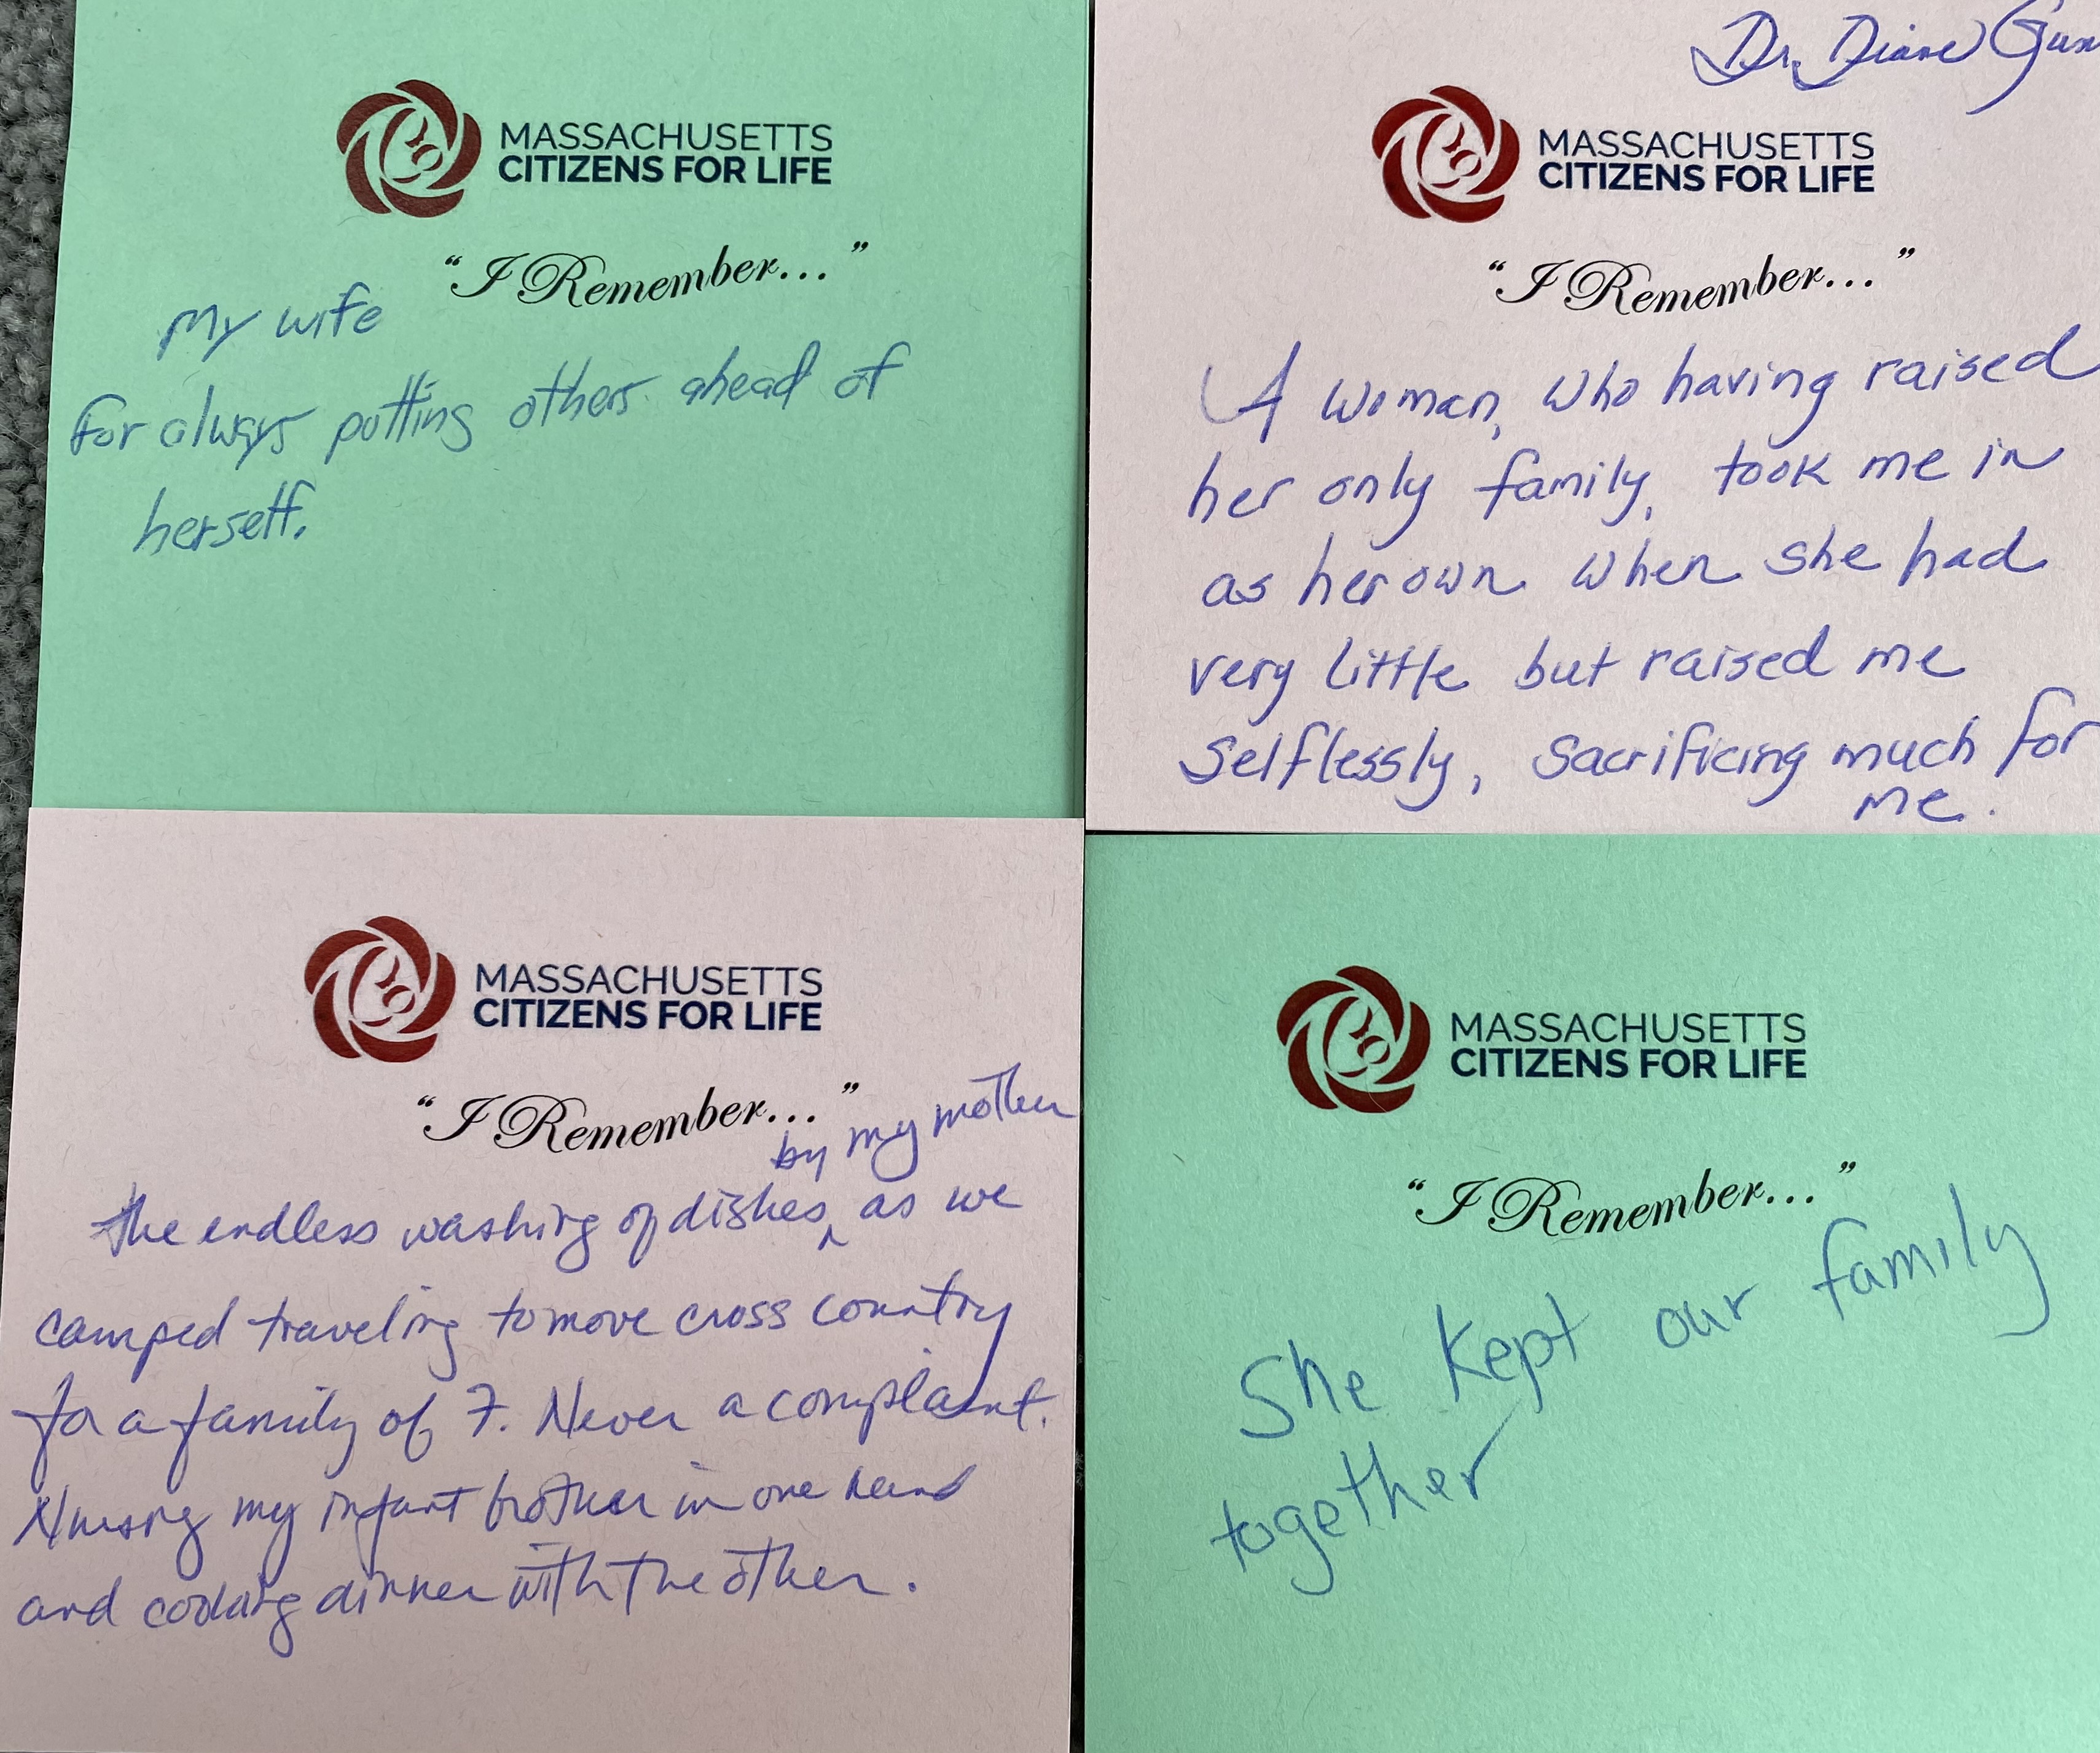 MASSACHUSETTS
CITIZENS FOR LIFE
“I Remember...”
My wife
for always putting others ahead of
herself.
Dr. Diane Gun
MASSACHUSETTS
CITIZENS FOR LIFE
“I Remember...”
A woman, who having raised
her only family, took me in
as her own when she had
very little but raised me
selflessly, sacrificing much for
me.
MASSACHUSETTS
CITIZENS FOR LIFE
“I Remember...”
by my mother
the endless washing of dishes ‸ as we
camped traveling to move cross country
for a family of 7. Never a complaint.
Nursing my infant brother in one hand
and cooking dinner with the other.
MASSACHUSETTS
CITIZENS FOR LIFE
“I Remember...”
She kept our family
together